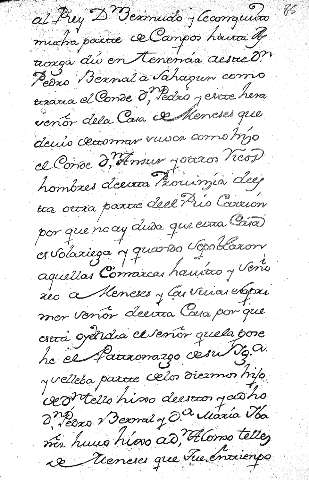 85
al Rey Dn Bermudo y leconquito
mucha parte de Campos hasta As
torga dio en tenencia desde Dn
Pedro Bernal a Sahagun como
traxia el Conde Dn Pedro y este hera
señor dela Casa de Meneses que
devio detomar vusca como hijo
el Conde Dn Ansur y otros Ricos
hombres de esta Provinzia de es
ta otra parte de el Rio Carrion
por que no ay duda que esta Casa
es solariega y quando se poblaron
aquellas Comarcas ha
a Meneses y las suias es el pri
mer señor de esta Casa por que
esta oy dia el señor que la pose
he el Patronazgo de su Yga.
y lleba parte delos diezmos hijo
de Dn tello hixo de estos y a dho
Dn Pedro Bernal y Da. Maria Iba
ñes huuo hixo a Dn Alonso tellez
de Meneses que fue entiempo